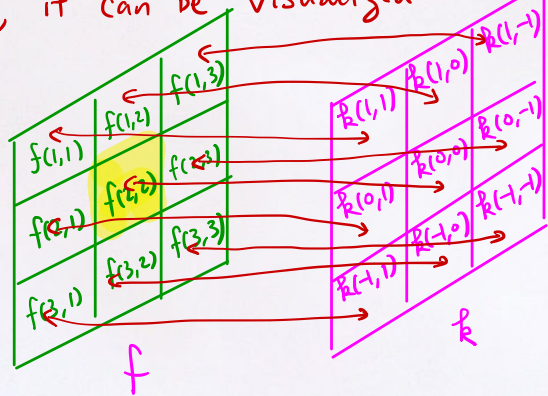 it can be visualiz
f(1,1) f(1,2) f(1,3)
f(2,1) f(2,2) f(2,3)
f(3,1) f(3,2) f(3,3)
f
k(1,1) k(1,0) k(1,-1)
k(0,1) k(0,0) k(0,-1)
k(-1,1) k(-1,0) k(-1,-1)
k